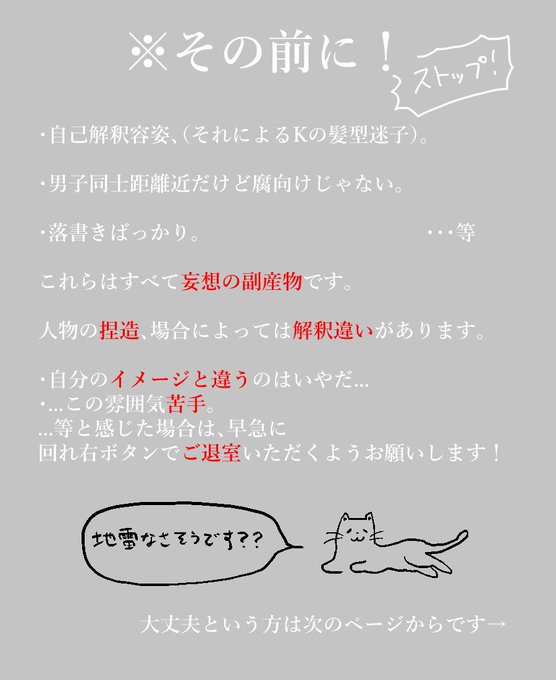 ※その前に！
ストップ!
・自己解釈容姿、（それによるKの髪型迷子）。
・男子同士距離近だけど腐向けじゃない。
・落書きばっかり。　　　　　　　　　　　・・・等
これらはすべて妄想の副産物です。
人物の捏造、場合によっては解釈違いがあります。
・自分のイメージと違うのはいやだ...
・...この雰囲気苦手。
...等と感じた場合は、早急に
回れ右ボタンでご退室いただくようお願いします！
地雷なさそうです??
大丈夫という方は次のページからです→